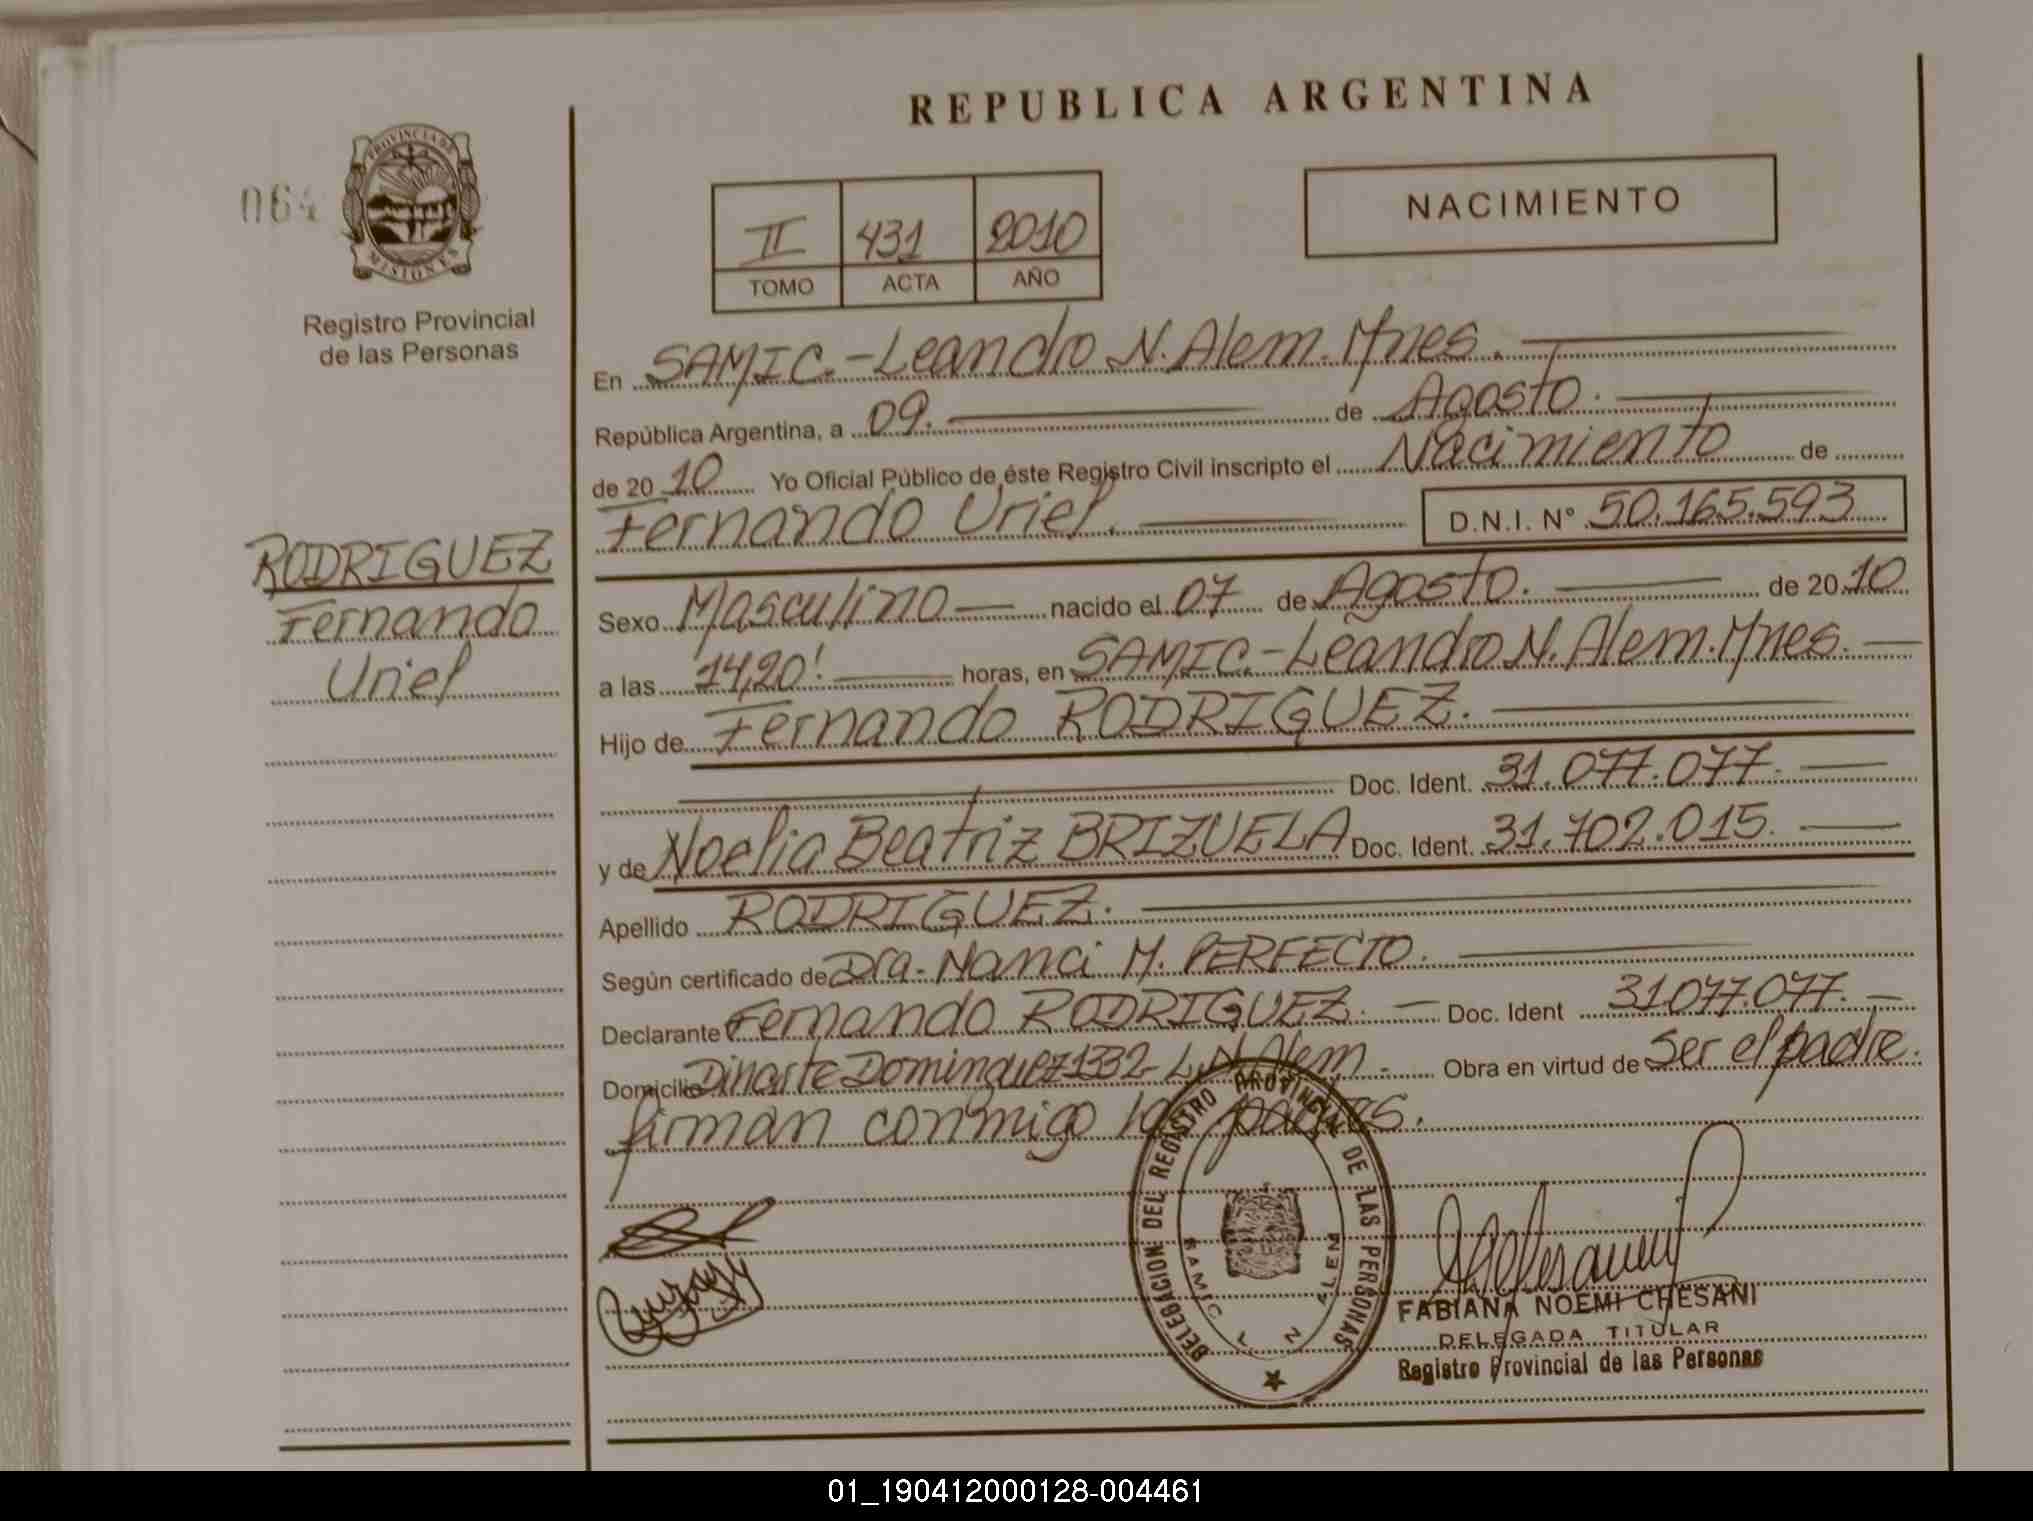 REPUBLICA ARGENTINA
064
PROVINCIA DE
MISIONES
Registro Provincial
de las Personas
NACIMIENTO
II 431 2010
TOMO ACTA AÑO
En SAMIC.-Leandro N. Alem. Mnes.
República Argentina, a 09. de Agosto.
de 20 10 Yo Oficial Público de éste Registro Civil inscripto el Nacimiento de
Fernando Uriel. D.N.I. N° 50.165.593
RODRIGUEZ
Fernando
Uriel
Sexo Masculino nacido el 07 de Agosto. de 20 10
a las 14,20! horas, en SAMIC.-Leandro N. Alem. Mnes.
Hijo de Fernando RODRIGUEZ.
Doc. Ident. 31.077.077.
y de Noelia Beatriz BRIZUELA Doc. Ident. 31.702.015.
Apellido RODRIGUEZ.
Según certificado de Dra. Nanci M. PERFECTO.
Declarante Fernando RODRIGUEZ. Doc. Ident 31.077.077.
Domicilio Dinarte Dominguez 1332- L.N. Alem. Obra en virtud de Ser el padre.
firman conmigo los padres.
DELEGACION DEL REGISTRO PROVINCIAL DE LAS PERSONAS
SAMIC L N ALEM
FABIANA NOEMI CHESANI
DELEGADA TITULAR
Registro Provincial de las Personas
01_190412000128-004461